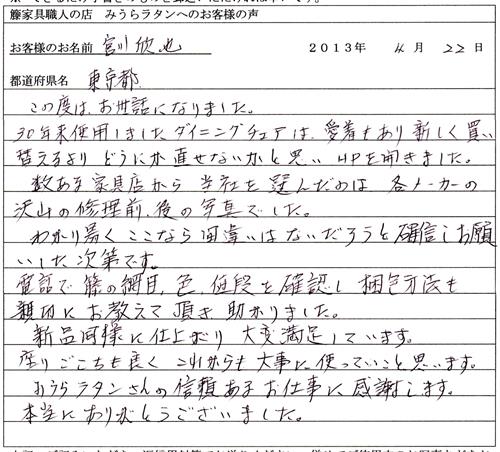 籐家具職人の店 みうらラタンへのお客様の声
お客様のお名前 宮川 欣也 2013年 4月 22日
都道府県名 東京都
この度は、お世話になりました。
30年来使用しましたダイニングチェアは、愛着もあり新しく買い
替えるより どうにか直せないかと思い HPを開きました。
数ある家具店から 当社を選んだのは 各メーカーの
沢山の修理前、後の写真でした。
わかり易く ここなら間違いはないだろうと確信しお願
いした次第です。
電話で籐の網目、色、値段を確認し 梱包方法も
親切にお教えて頂き 助かりました。
新品同様に仕上がり 大変満足しています。
座りごこちも良く これからも大事に使っていこと思います。
みうらラタンさんの信頼あるお仕事に感謝します。
本当にありがとうございました。